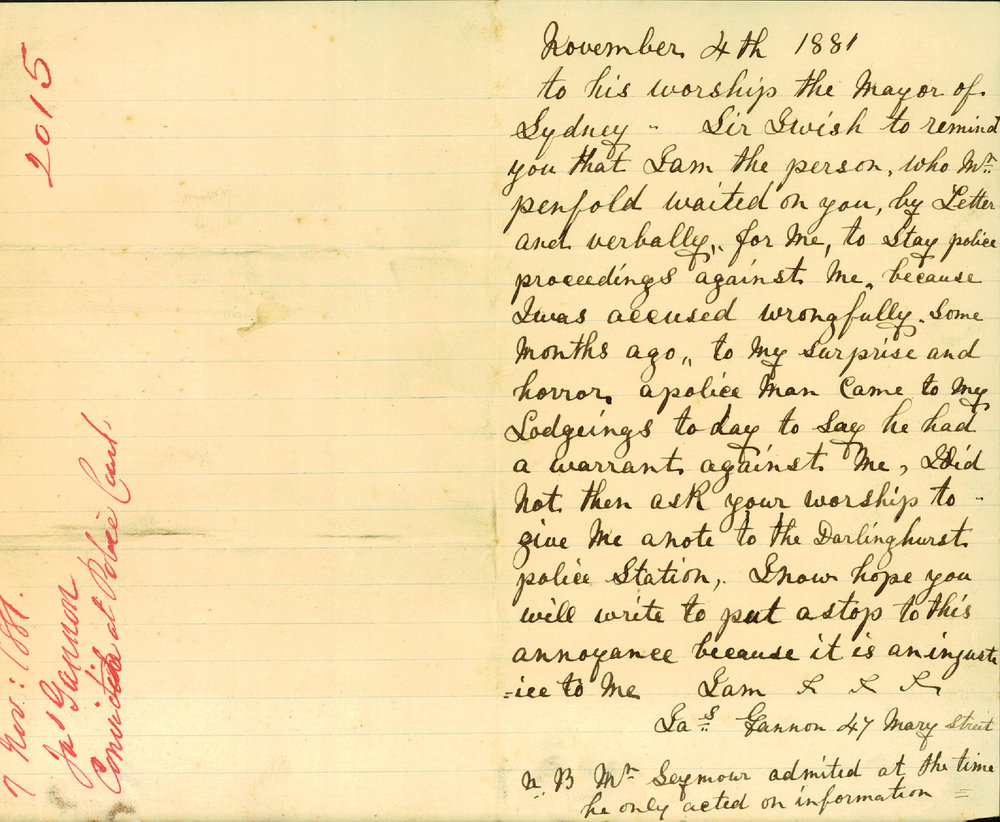 2015
7 Nov: 1881.
Jas Gannon
Conviction at Police Court.
November 4th 1881
to his worship the Mayor of
Sydney - Sir I wish to remind
you that I am the person, who Mr.
penfold waited on you, by Letter
and verbally,, for Me, to Stay police
proceedings against Me, because
I was accused wrongfully. Some
Months ago,, to My Surprise and
horror, a police Man Came to My
Lodgeings to day to Say he had
a warrant against Me, I did
Not then ask your worship to -
give Me a note to the Darlinghurst
police Station,. I now hope you
will write to put a stop to this
annoyance because it is an injust
=ice to Me I am & & &
Jas. Gannon 47 Mary Street
N. B Mr Seymour admited at the time
he only acted on information =